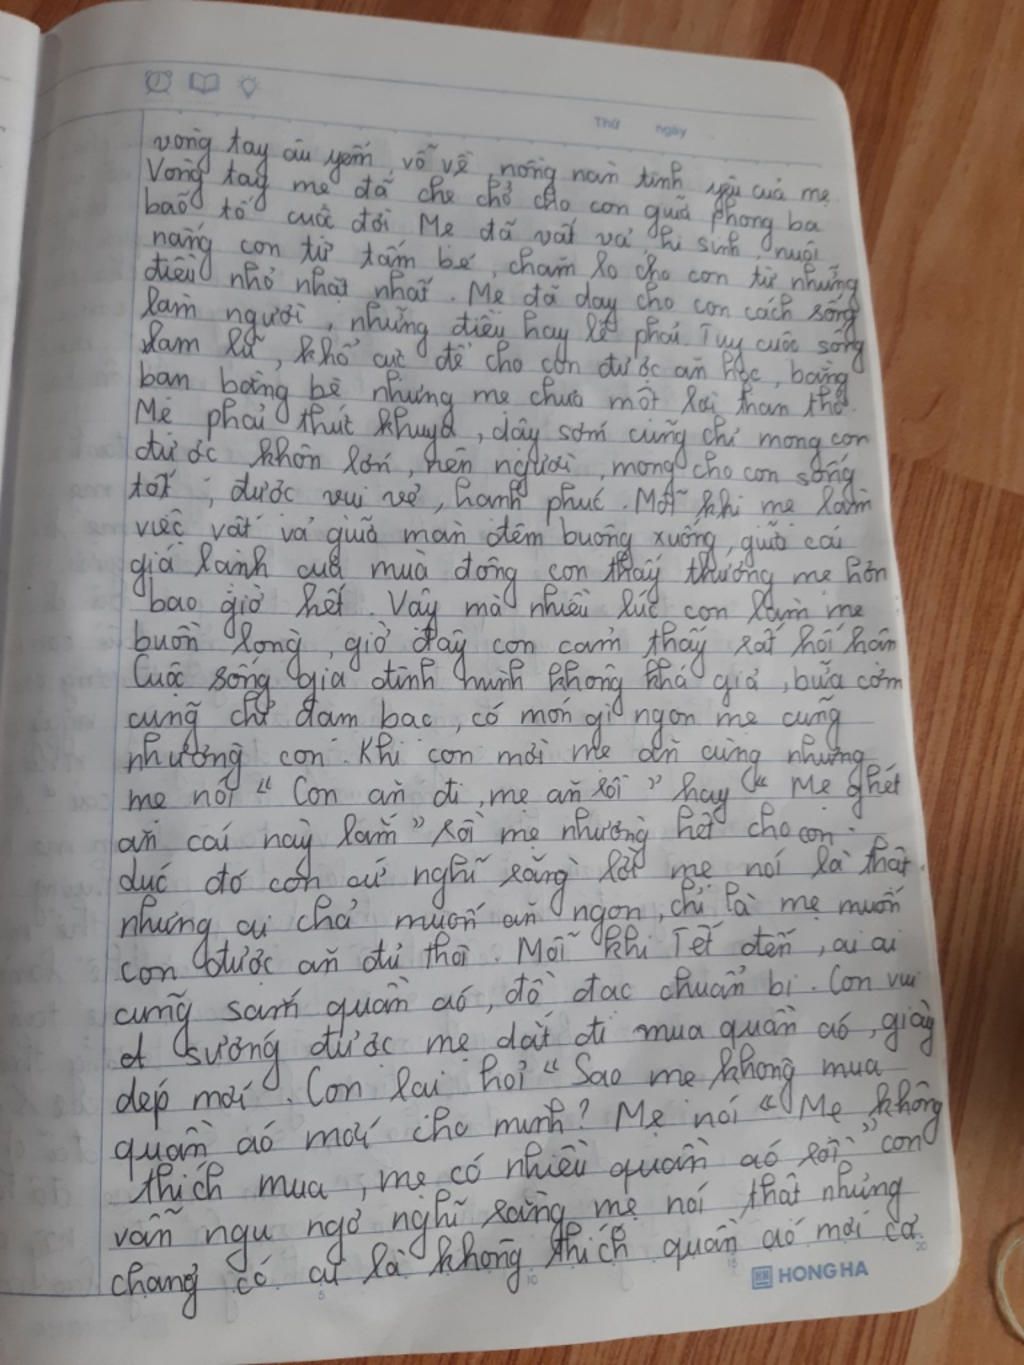 Thứ ngày
vòng tay âu yếm, vỗ về, nồng nàn tình yêu của mẹ.
Vòng tay mẹ đã che chở cho con quã phong ba
bão tố cuộc đời Mẹ đã vất vả, hi sinh, nuôi
nấng con từ tấm bé, chăm lo cho con từ những
điều nhỏ nhặt nhất. Mẹ đã dạy cho con cách sống
làm người, những điều hay lẽ phải. Tuy cuộc sống
lam lũ, khổ cực để cho con được ăn học, bằng
bạn bằng bè nhưng mẹ chưa một lời than thở.
Mẹ phải thức khuya, dậy sớm cũng chỉ mong con
được khôn lớn, nên người, mong cho con sống
tốt, được vui vẻ, hạnh phúc. Mỗi khi mẹ làm
việc vất vả giữa màn đêm buông xuống, giữa cái
giá lạnh của mùa đông con thấy thương mẹ hơn
bao giờ hết. Vậy mà nhiều lúc con làm mẹ
buồn lòng, giờ đây con cảm thấy rất hối hận
Cuộc sống gia đình mình không khá giả, bữa cơm
cũng chỉ đạm bạc, có món gì ngon mẹ cũng
nhường con. Khi con mời mẹ ăn cùng nhưng
mẹ nói “ Con ăn đi, mẹ ăn rồi ” hay “ Mẹ ghét
ăn cái này lắm ” rồi mẹ nhường hết cho con.
dúc đó con cứ nghĩ rằng lời mẹ nói là thật.
nhưng ai chả muốn ăn ngon, chỉ là mẹ muốn
con được ăn đủ thôi. Mỗi khi Tết đến, ai ai
cũng sắm quần áo, đồ đạc chuẩn bị. Con vui
sướng được mẹ dắt đi mua quần áo, giày
dép mới. Con lại hỏi “ Sao mẹ không mua
quần áo mới cho mình? Mẹ nói “ Mẹ không
thích mua, mẹ có nhiều quần áo rồi ” con
vẫn ngu ngơ nghĩ rằng mẹ nói thật nhưng
chẳng có ai là không thích quần áo mới cả.
5 10 15 20
HONG HA